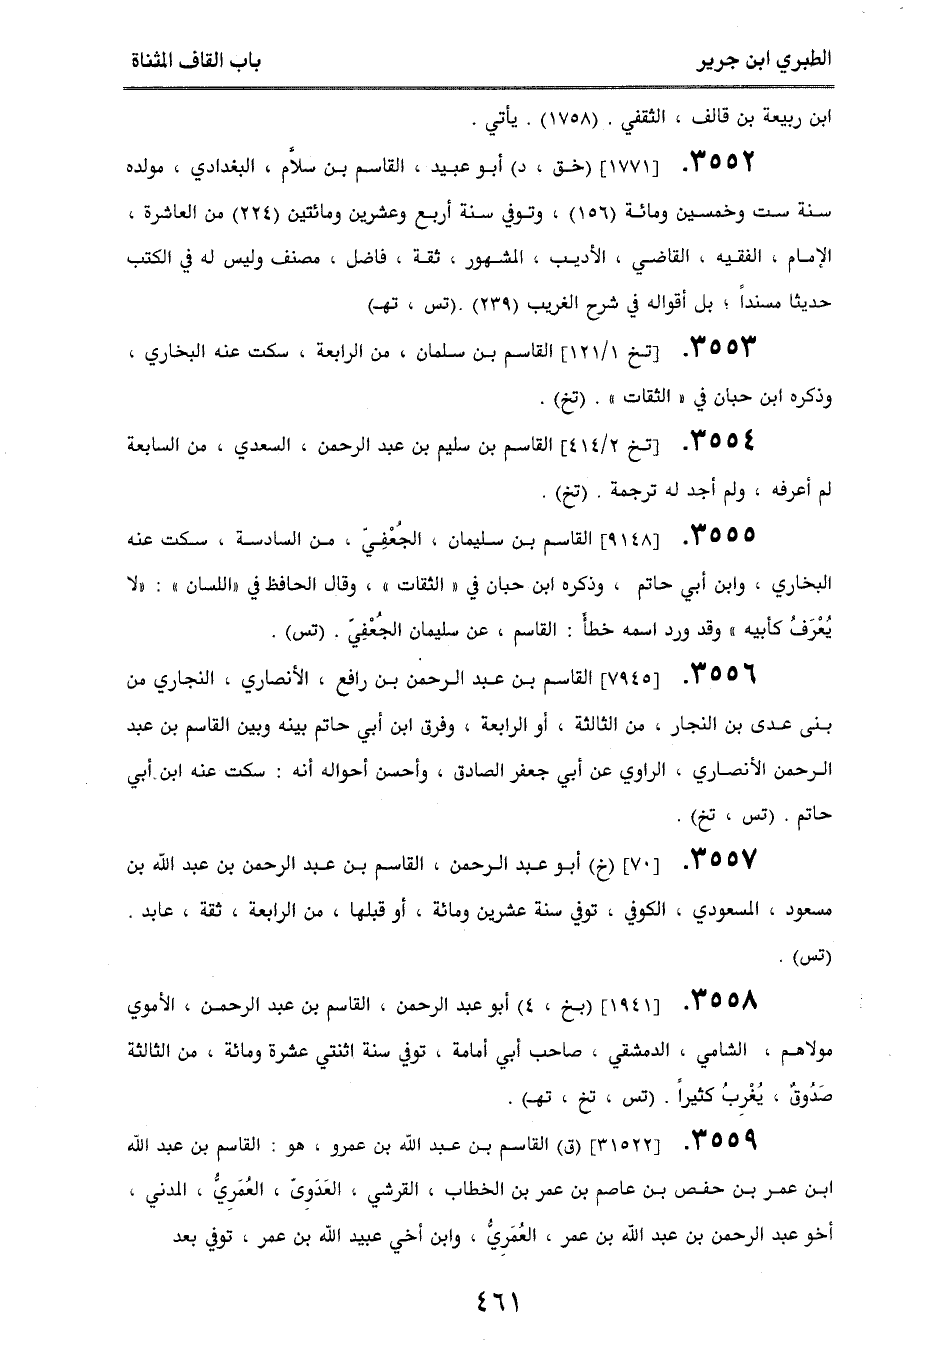 الطبري ابن جرير
باب القاف المثناة
ابن ربيعة بن قالف ، الثقفي . (١٧٥٨) . يأتي .
٣٥٥٢. [١٧٧١] (خـق ، د) أبـو عبيـد ، القاسـم بـن سـلاَّم ، البغدادي ، مولده
سـنة سـت وخمسـين ومائـة (١٥٦) ، وتـوفي سنة أربـع وعشرين ومائتين (٢٢٤) من العاشرة ،
الإمـام ، الفقيـه ، القاضـي ، الأديـب ، المشـهور ، ثقـة ، فاضل ، مصنف وليس له في الكتب
حديثا مسنداً ؛ بل أقواله في شرح الغريب (٢٣٩) .(تس ، تهـ)
٣٥٥٣. [تـخ ١٢١/١] القاسـم بـن سـلمان ، من الرابعة ، سكت عنه البخاري ،
وذكره ابن حبان في « الثقات » . (تخ) .
٣٥٥٤. [تـخ ٤١٤/٢] القاسـم بن سليم بن عبد الرحمن ، السعدي ، من السابعة
لم أعرفه ، ولم أجد له ترجمة . (تخ) .
٣٥٥٥. [٩١٤٨] القاسـم بـن سـليمان ، الجُعْفِـيّ ، مـن السادسـة ، سـكت عنـه
البخاري ، وابن أبي حاتم ، وذكره ابن حبان في « الثقات » ، وقال الحافظ في «اللسان » : «لا
يُعْرَفُ كأبيه » وقد ورد اسمه خطأ : القاسم ، عن سليمان الجُعْفِيّ . (تس) .
٣٥٥٦. [٧٩٤٥] القاسم بـن عبـد الـرحمن بـن رافع ، الأنصاري ، النجاري من
بـنى عـدى بن النجار ، من الثالثة ، أو الرابعة ، وفرق ابن أبي حاتم بينه وبين القاسم بن عبد
الـرحمن الأنصـاري ، الراوي عن أبي جعفر الصادق ، وأحسن أحواله أنه : سكت عنه ابن أبي
حاتم . (تس ، تخ) .
٣٥٥٧. [٧٠] (خ) أبـو عبد الـرحمن ، القاسم بـن عبد الرحمن بن عبد الله بن
مسعود ، المسعودي ، الكوفي ، توفي سنة عشرين ومائة ، أو قبلها ، من الرابعة ، ثقة ، عابد .
(تس) .
٣٥٥٨. [١٩٤١] (بـخ ، ٤) أبو عبد الرحمن ، القاسم بن عبد الرحمـن ، الأموي
مولاهـم ، الشامي ، الدمشقي ، صاحب أبي أمامة ، توفي سنة اثنتي عشرة ومائة ، من الثالثة
صَدُوقٌ ، يُغْرِبُ كثيراً . (تس ، تخ ، تهـ) .
٣٥٥٩. [٣١٥٢٢] (ق) القاسـم بـن عبـد الله بن عمرو ، هو : القاسم بن عبد الله
ابـن عمـر بـن حفـص بـن عاصم بن عمر بن الخطاب ، القرشي ، العَدَوِىّ ، العُمَرِيُّ ، المدني ،
أخو عبد الرحمن بن عبد الله بن عمر ، العُمَرِيُّ ، وابن أخي عبيد الله بن عمر ، توفي بعد
٤٦١